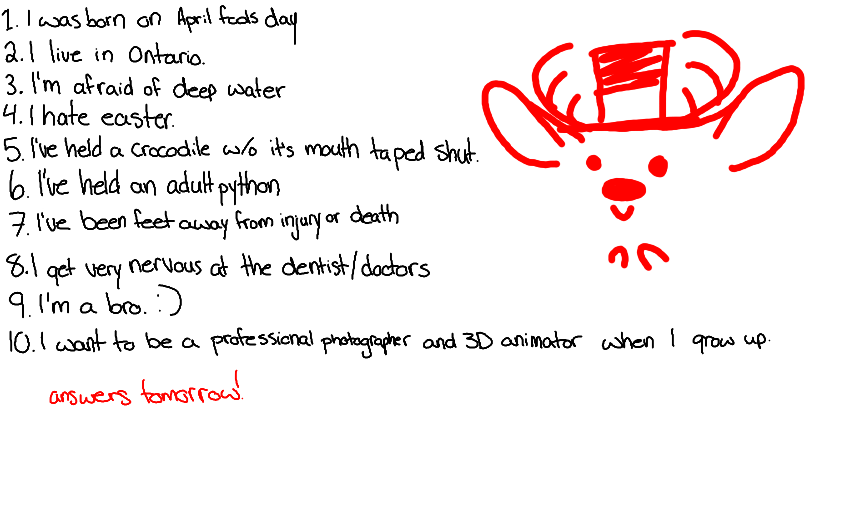 1. I was born on April fools day
2. I live in Ontario.
3. I'm afraid of deep water
4. I hate easter.
5. I've held a crocodile w/o it's mouth taped shut.
6. I've held an adult python
7. I've been feet away from injury or death
8. I get very nervous at the dentist/doctors
9. I'm a bro. :)
10. I want to be a professional photographer and 3D animator when I grow up.
answers tomorrow!